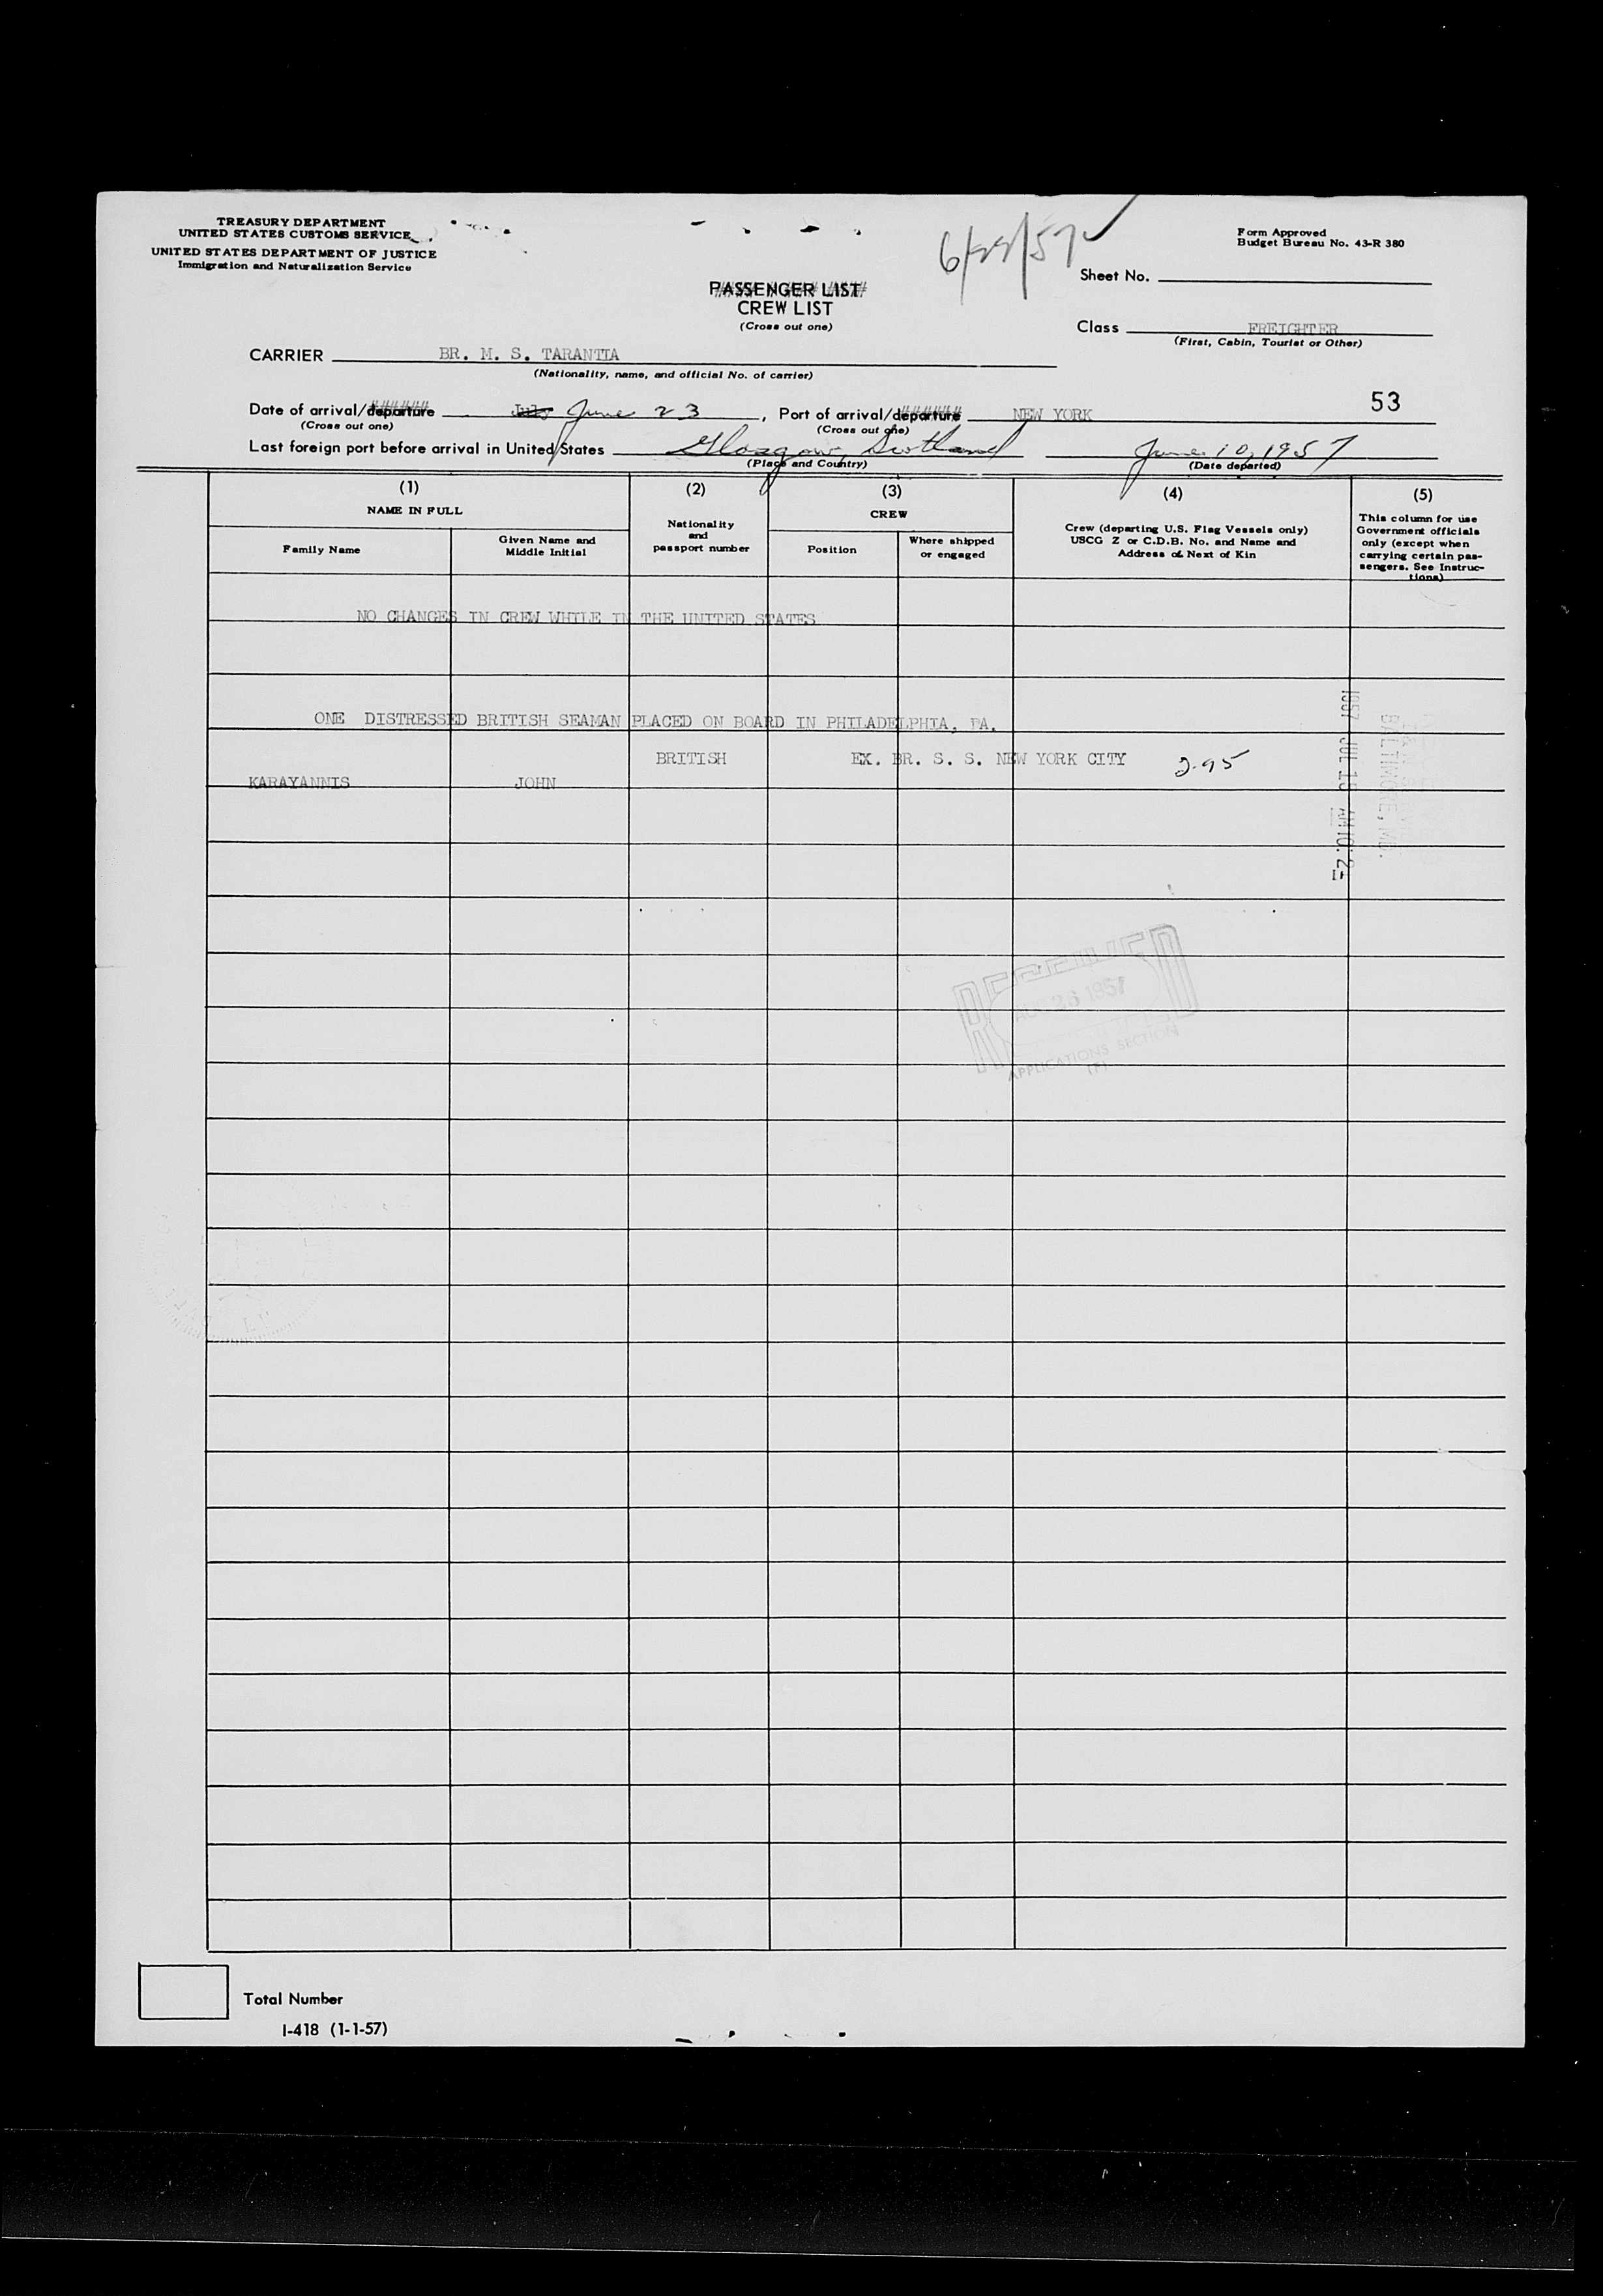 TREASURY DEPARTMENT
UNITED STATES CUSTOMS SERVICE
UNITED STATES DEPARTMENT OF JUSTICE
Immigration and Naturalization Service
Form Approved
Budget Bureau No. 43-R 380
Sheet No.
PASSENGER LIST
CREW LIST
(Cross out one)
Class FREIGHTER
(First, Cabin, Tourist or Other)
CARRIER BR. M. S. TARANTIA
(Nationality, name, and official No. of carrier)
53
Date of arrival/departure July June 23, Port of arrival/departure NEW YORK
(Cross out one) (Cross out one)
Last foreign port before arrival in United States Glasgow, Scotland June 10, 1957
(Place and Country) (Date departed)
(1) (2) (3) (4) (5)
NAME IN FULL
Family Name
Given Name and
Middle Initial
Nationality
and
passport number
CREW
Position
Where shipped
or engaged
Crew (departing U.S. Flag Vessels only)
USCG Z or C.D.B. No. and Name and
Address of Next of Kin
This column for use
Government officials
only (except when
carrying certain pas-
sengers. See Instruc-
tions)
NO CHANGES IN CREW WHILE IN THE UNITED STATES
ONE DISTRESSED BRITISH SEAMAN PLACED ON BOARD IN PHILADELPHIA, PA.
BRITISH EX. BR. S. S. NEW YORK CITY 295
KARAYANNIS JOHN
1957 JUL 15 AM 10:21
BALTIMORE, MD.
RECEIVED
AUG 26 1957
APPLICATIONS SECTION
Total Number
I-418 (1-1-57)